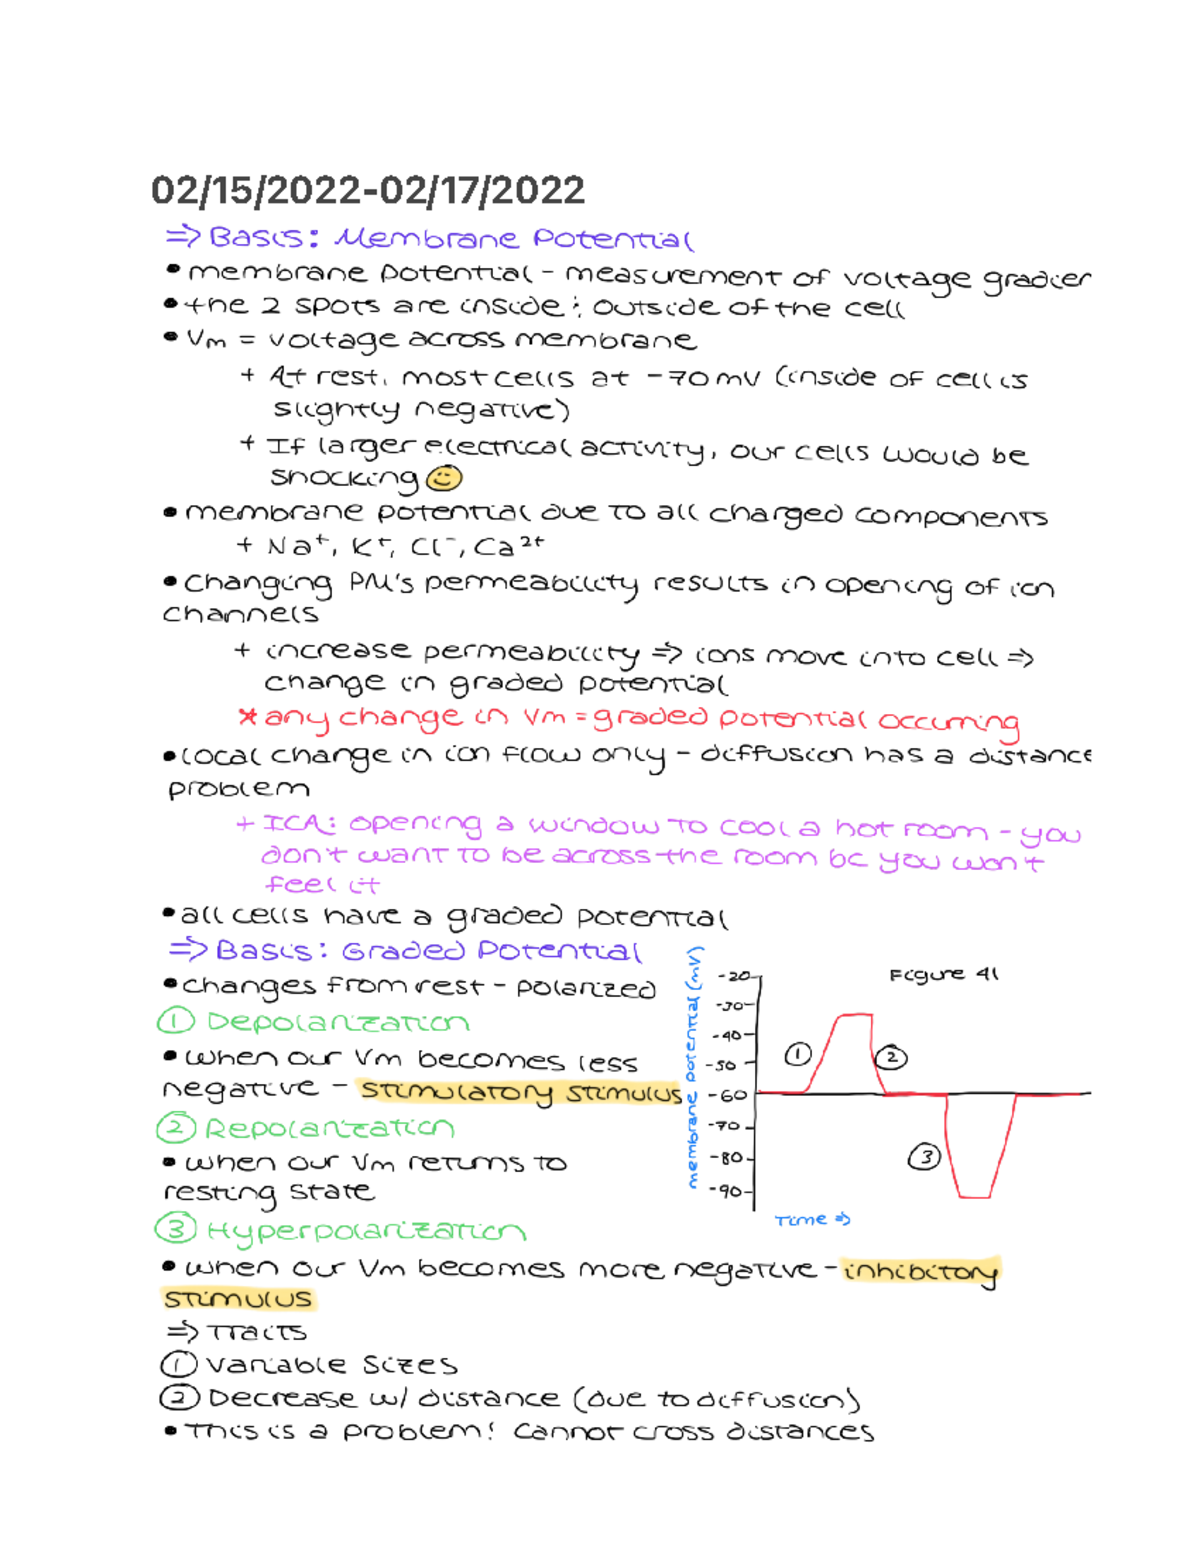 02/15/2022-02/17/2022
⇒ Basis: Membrane Potential
• membrane potential - measurement of voltage gradien
• the 2 spots are inside & outside of the cell
• Vm = voltage across membrane
+ At rest, most cells at -70mV (inside of cell is
slightly negative)
+ If larger electrical activity, our cells would be
shocking 🙂
• membrane potential due to all charged components
+ Na⁺, K⁺, Cl⁻, Ca²⁺
• changing PM's permeability results in opening of ion
channels
+ increase permeability ⇒ ions move into cell ⇒
change in graded potential
* any change in Vm = graded potential occuring
• local change in ion flow only - diffusion has a distance
problem
+ ICA: opening a window to cool a hot room - you
don't want to be across the room bc you won't
feel it
• all cells have a graded potential
⇒ Basis: Graded Potential
• changes from rest - polarized
① Depolarization
• when our Vm becomes less
negative - stimulatory stimulus
② Repolarization
• when our Vm returns to
resting state
③ Hyperpolarization
• when our Vm becomes more negative - inhibitory
stimulus
⇒ Traits
① Variable Sizes
② Decrease w/ distance (due to diffusion)
• This is a problem! Cannot cross distances
Figure 41
membrane potential (mV)
-20
-30
-40
-50
-60
-70
-80
-90
①
②
③
Time ⇒